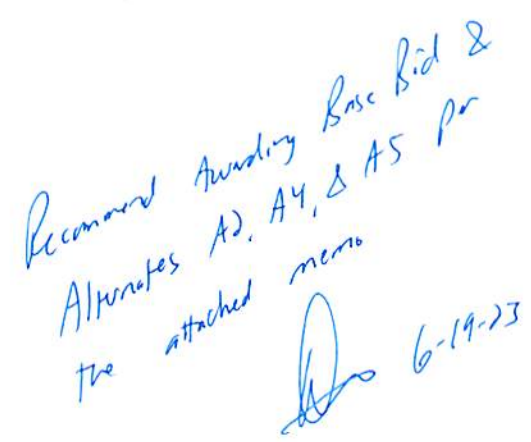 Recommend Awarding Base Bid &
Alternates A2, A4, & A5 per
the attached memo
6-19-23